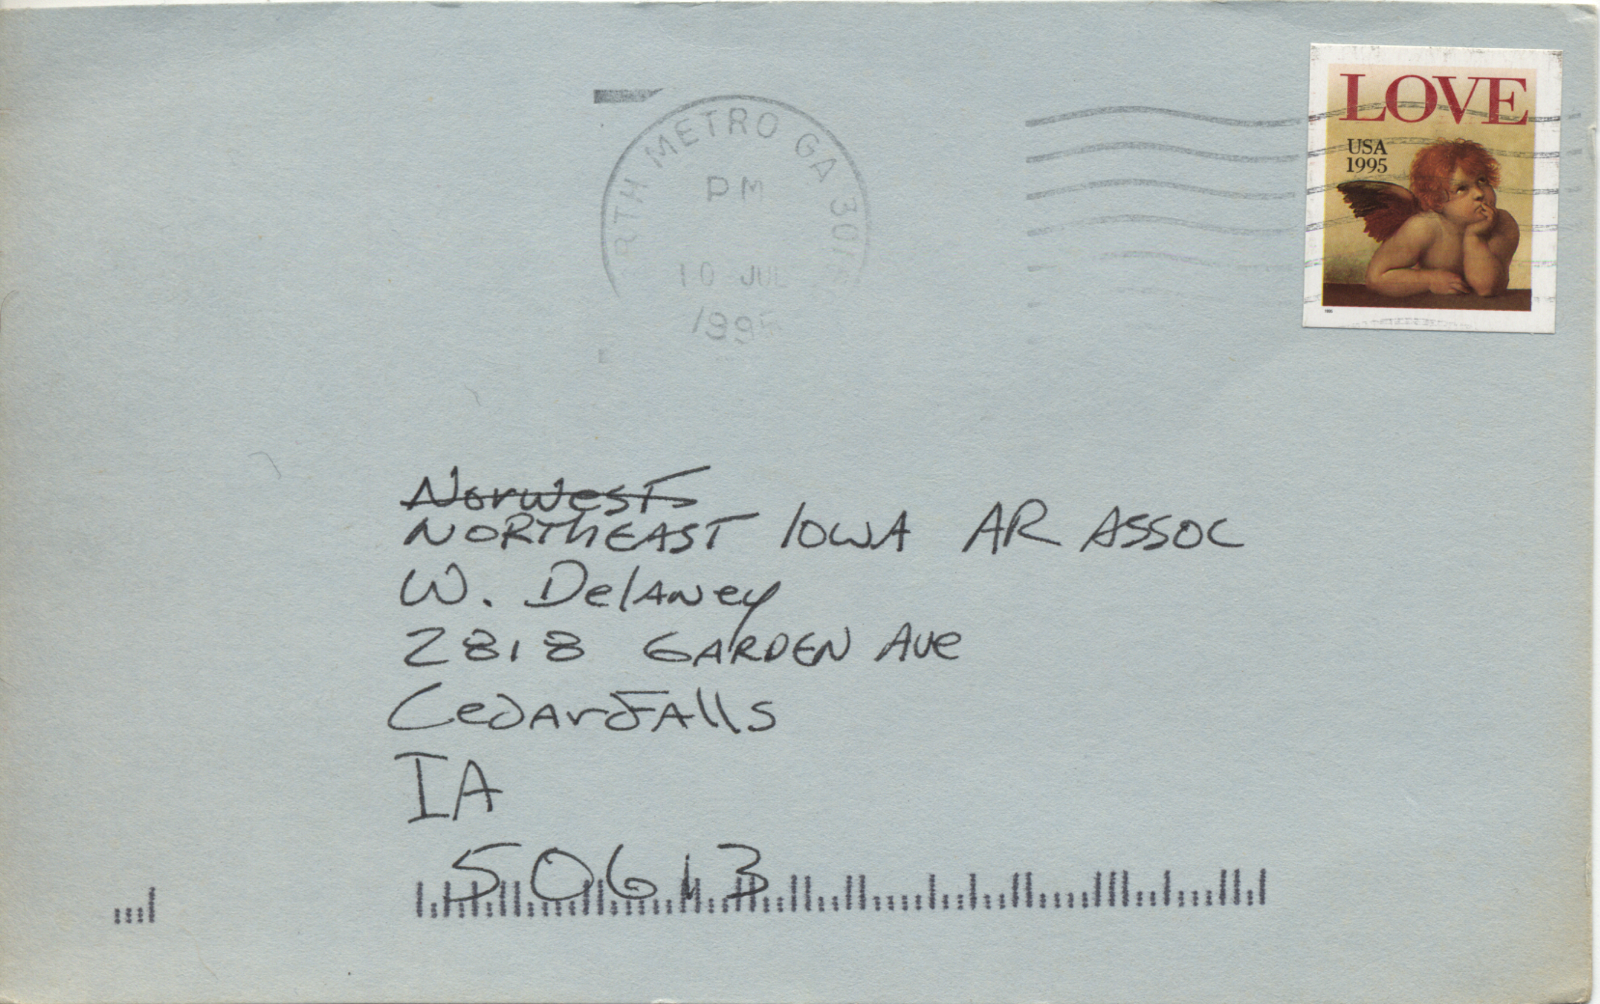 LOVE
USA
1995
RTH METRO GA 30
PM
10 JUL
1995
Norwest
NORTHEAST IOWA AR ASSOC
W. Delaney
2818 GARDEN Ave
Cedar Falls
IA
50613